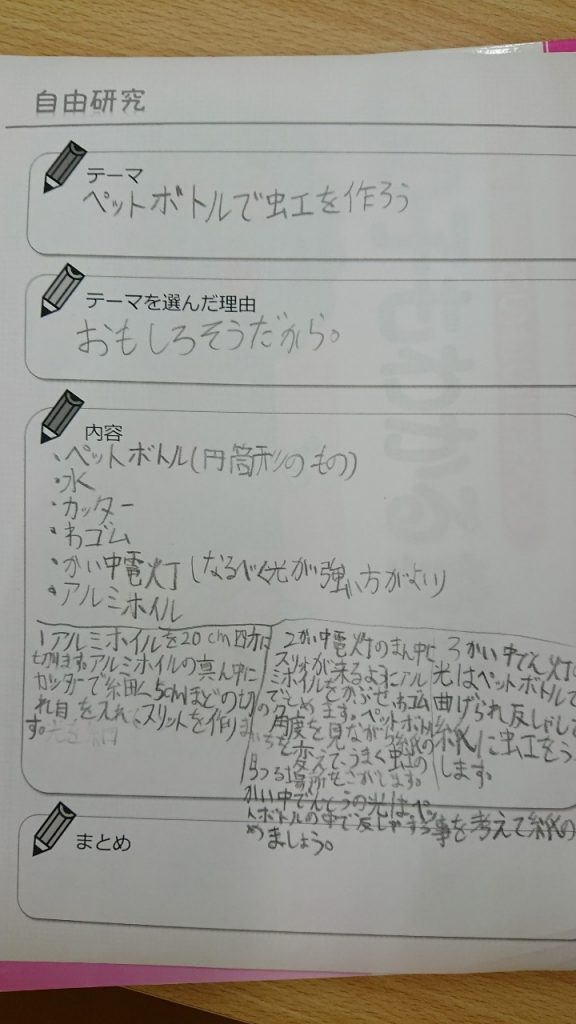 自由研究
テーマ
ペットボトルで虹を作ろう
テーマを選んだ理由
おもしろそうだから。
内容
・ペットボトル(円筒形のもの)
・水
・カッター
・わゴム
・かい中電灯(なるべく光が強い方がよい)
・アルミホイル
1アルミホイルを20cm四方に
切ります。アルミホイルの真ん中に
カッターで細く5cmほどの切
れ目を入れ、スリットを作りま
す。
2かい中電灯のまん中に
スリットが来るようにアル
ミホイルをかぶせ、わゴム
でとめます。ペットボトル
角度を見ながら紙の
いちを変えて、うまく虹の
うつる場所をさがします。
かい中でんとうの光はペッ
トボトルの中で反しゃする事を考えて紙の
めましょう。
3かい中でん灯の
光はペットボトルで
曲げられ反しゃして
紙に虹をうつ
します。
まとめ